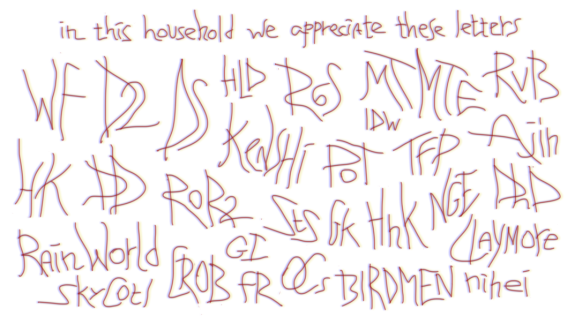 in this household we appreciate these letters
WF D2 DS HLD R6S MTMTE RVB
IDW
KENSHi POT TFP Ajin
HK DD ROR2 StS GK HhK NGE DHD
RainWorld GI CLAYMORE
SkyCotl CROB FR OCs BIRDMEN nihei